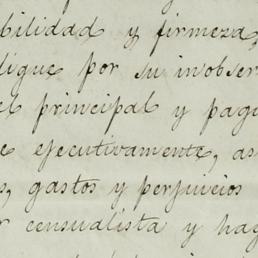 bilidad y firmeza,
dique por su inobser
el principal y pag
e ejecutivamente, as
s, gastos y perjuicios
r censualista y hag